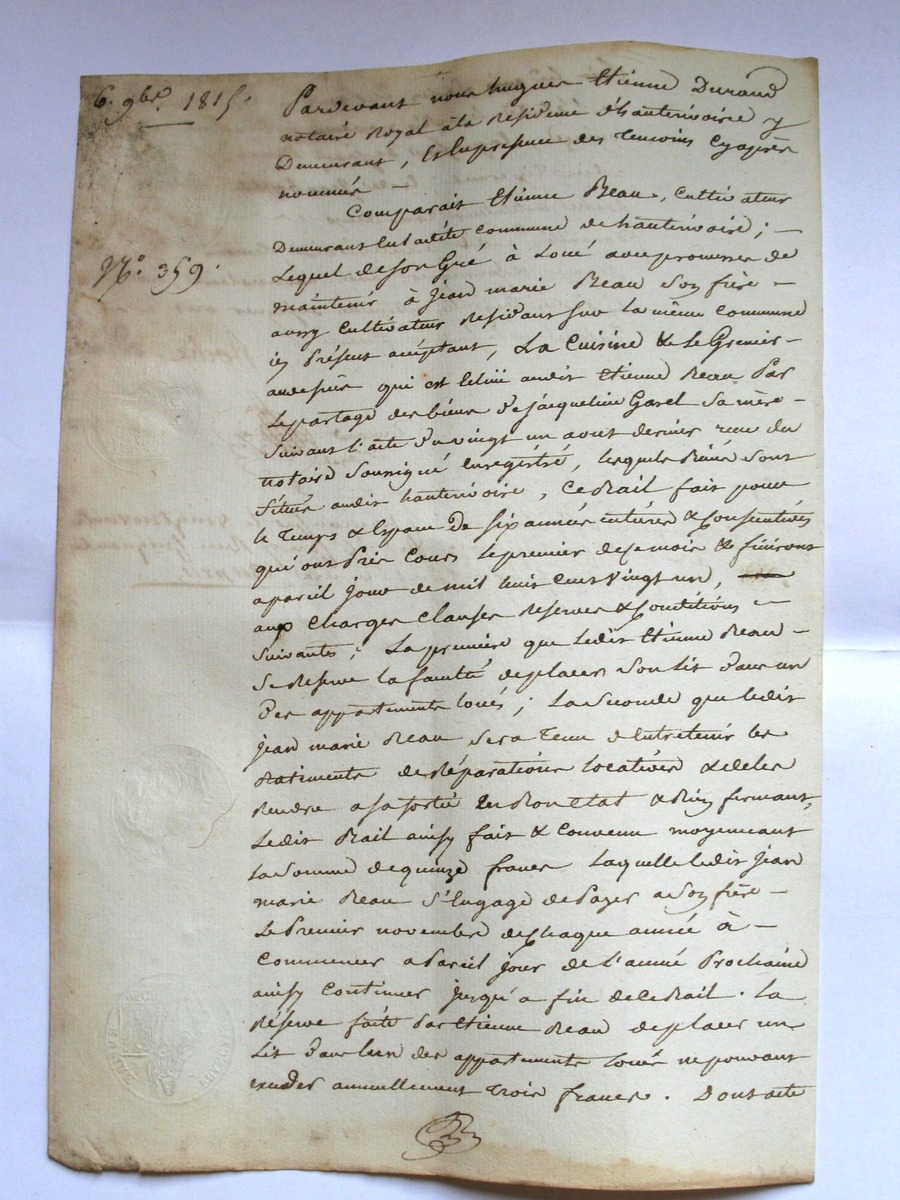 6. 9bre. 1815.
N.o 359.
Pardevant nous hugues Etienne Durand
notaire Royal à la Residence d'hauterivoire y
Demeurant, Et En presence des Temoins Cy après
nommés —
Comparait Etienne Beau, Cultivateur
Demeurant En ladite Commune de hauterivoire ; —
Lequel de son Gré à Loué avec promesse de
maintenir à Jean marie Beau Son frère —
aussy Cultivateur Residant sur la même Commune
icy Présent acceptant, La Cuisine & Le Grenier —
audessus qui est Echu audit Etienne Beau Par
Le partage des biens de jacqueline Garel Sa mère —
Suivant l'acte du vingt un aout dernier recu du
notaire Soussigné Enregistré, lesquels Biens sont
Situés audit hauterivoire, Ce Bail fait pour
le Temps & Espace De six années entières & Consecutives
qui ont Pris Cours Le premier de Ce mois & finiront
a pareil jour de mil huit Cent Vingt un, —
aux Charges Clauses Reserves & Conditions —
Suivantes ; La première que Ledit Etienne Beau —
Se Reserve la faculté de placer Son Lit Dans un
Des appartements loués ; La Seconde que ledit
jean marie Beau Sera Tenu d'Entretenir les
Batiments de Réparations locatives & de les
Rendre a sa sortie En Bon Etat & Bien fermant,
Ledit Bail ainsy fait & Convenu moyennant
La Somme de quinze francs Laquelle Ledit Jean
marie Beau S'Engage de Payer a Son frère —
Le Premier novembre de Chaque année à —
Commencer a Pareil jour de l'année Prochaine
ainsy Continuer jusqu'a fin de Ce Bail. La
Réserve faite Par Etienne Beau de placer un
Lit Dans l'un des appartements loués ne pouvant
exceder annuellement Trois francs. Dont acte